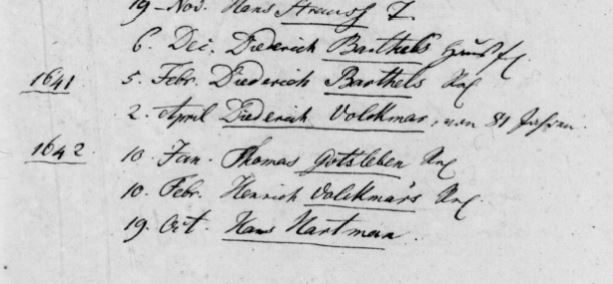 19 Nov. Hans Strauss T.
6. Dec. Diederich Barthels Hausfr.
1641 5. Febr. Diederich Barthels
2. April Diederich Volckmar, von 81 Jahren.
1642. 10. Jan. Thomas Gotsleben
10. Febr. Henrich Volckmar's
19. Oct. Hans Hartman.